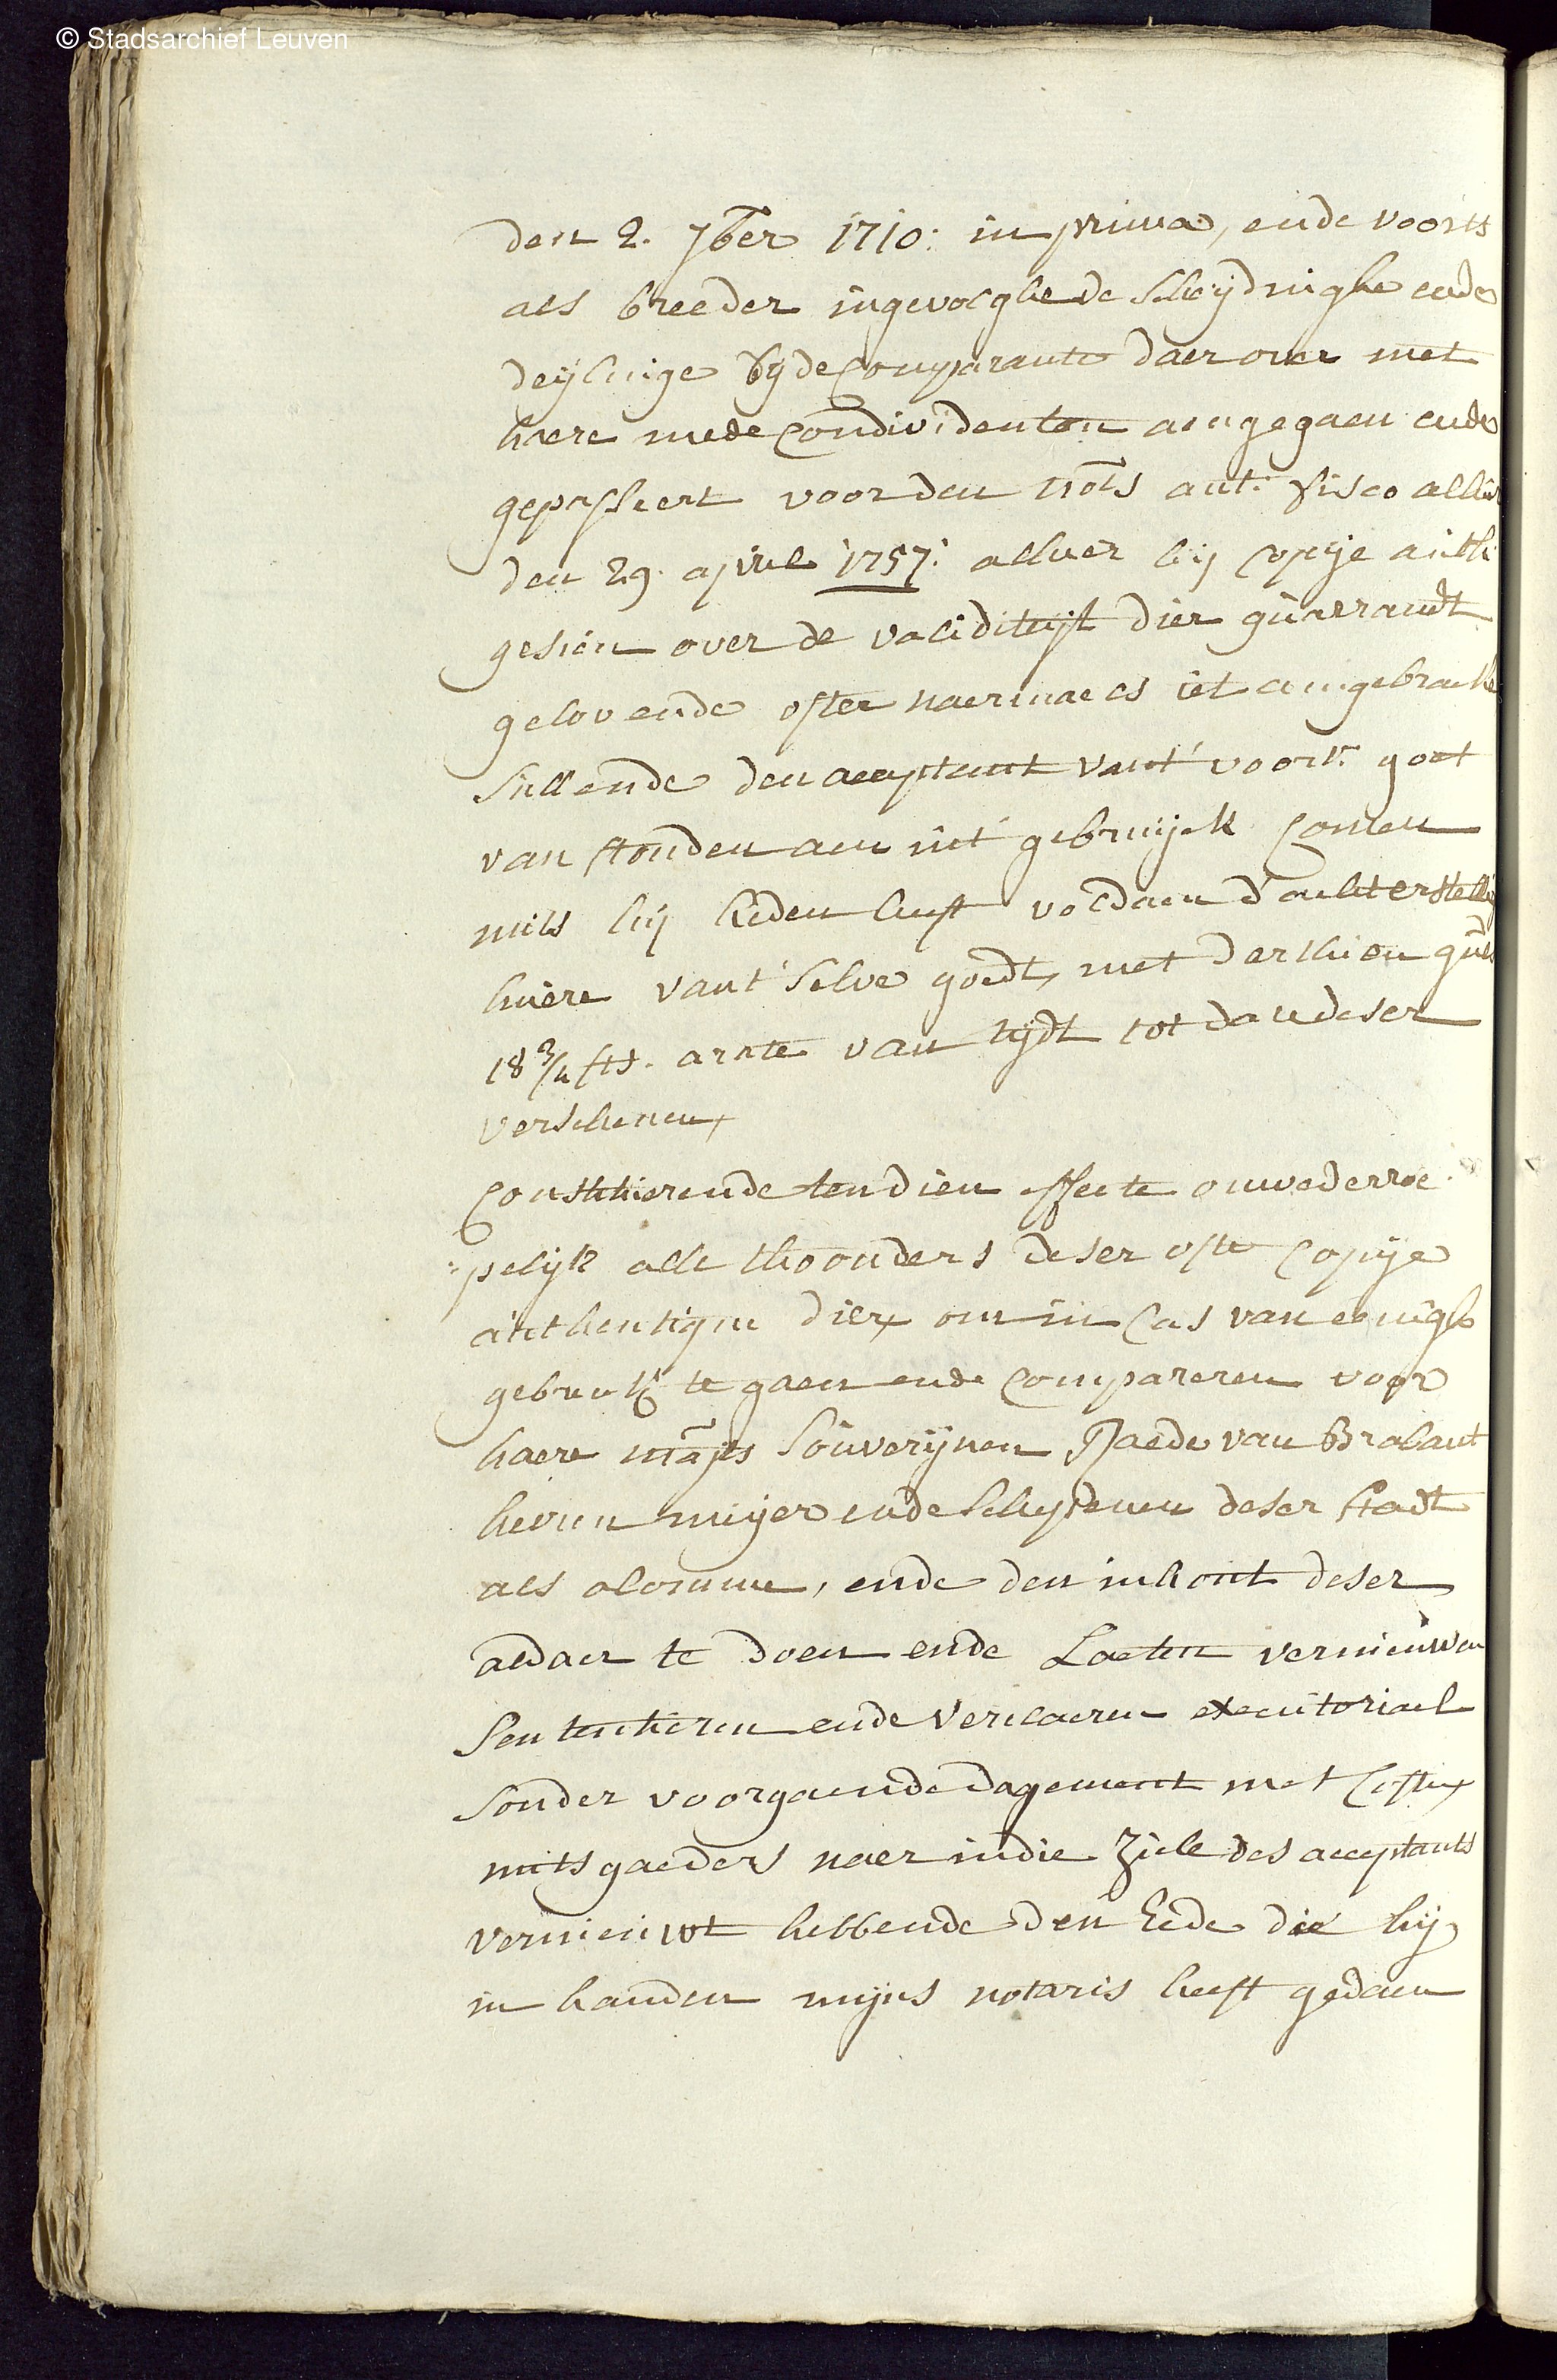 © Stadsarchief Leuven
den 2. 7ber 1710: in prima, ende voorts
als breeder ingevolghe de scheijdinghe ende
deijlinge bij de Comparante daer over met
haere mede Condividenten aengegaen ende
gepasseert voor den nots ant. fisco alhier
den 29. april 1757: alhier bij Copije auth:
gesien over de validiteijt dier guarrandt
gelovende ofter naermaels iet aengebracke
sullende den acceptant vant' voors. goet
van stonden aen int' gebruijck Comen
mits hij heden heeft voldaen d'achterstelle
huere vant' selve goedt, met derthien guls
18 3/4 sts. arnte van tijdt tot daude deser
verschenen,
Constituerende ten dien effecte onwederroe-
:pelijk alle thoonders deser ofte Copije
authentique dier, om in Cas van eenigh
gebreck te gaen ende Compareren voor
haere majts Souverijnen Raede van Brabant
heeren meijer ende schepenen deser stadt
als alomme, ende den inhout deser
aldaer te doen ende Laeten vernieuwen
Sententieren ende verclaeren executoriael
sonder voorgaende dagement met Costen,
mitsgaeders naer in die ziele des acceptants
vernieuwt hebbende den Eede die hij
in handen mijns notaris heeft gedaen